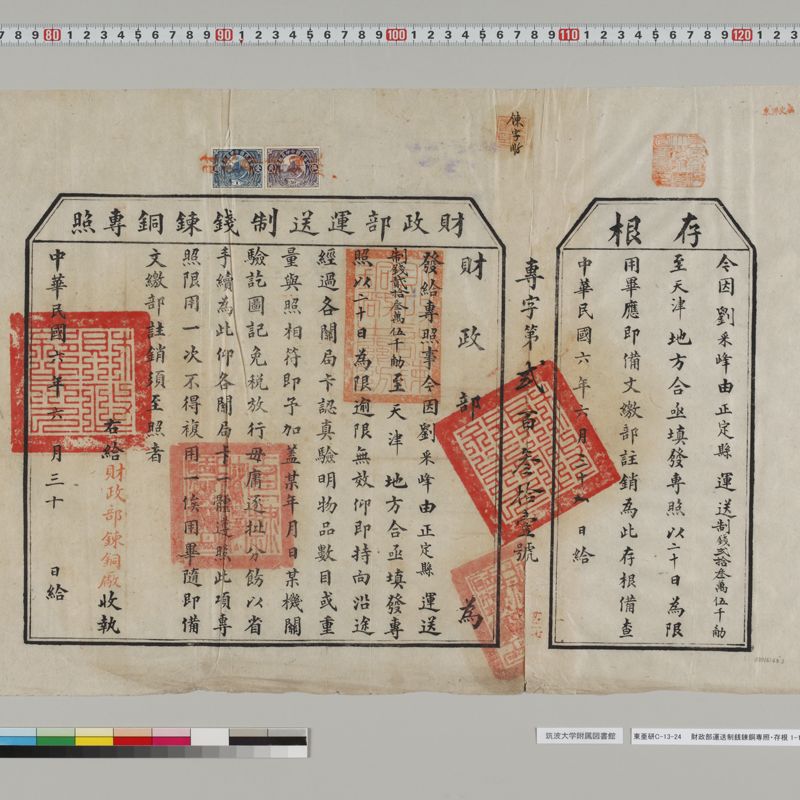 存根
令因劉采峰由正定縣運送制錢貳拾叁萬伍千觔
至天津地方合亟填發專照以二十日為限
用畢應即備文繳部註銷為此存根備查
中華民國六年六月三十日給
專字第貳百叁拾壹號
財政部運送制錢鍊銅專照
財政部為
發給專照事令因劉采峰由正定縣運送
制錢貳拾叁萬伍千觔至天津地方合亟填發專
照以二十日為限逾限無效仰即持向沿途
經過各關局卡認真驗明物品數目或重
量與照相符即予加蓋某年月日某機關
驗訖圖記免稅放行毋庸逐批分飭以省
手續為此仰各關局卡一體遵照此項專
照限用一次不得複用一俟用畢隨即備
文繳部註銷須至照者
右給財政部鍊銅廠收執
中華民國六年六月三十日給
筑波大学附属図書館
東亜研C-13-24 財政部運送制銭錬銅専照・存根